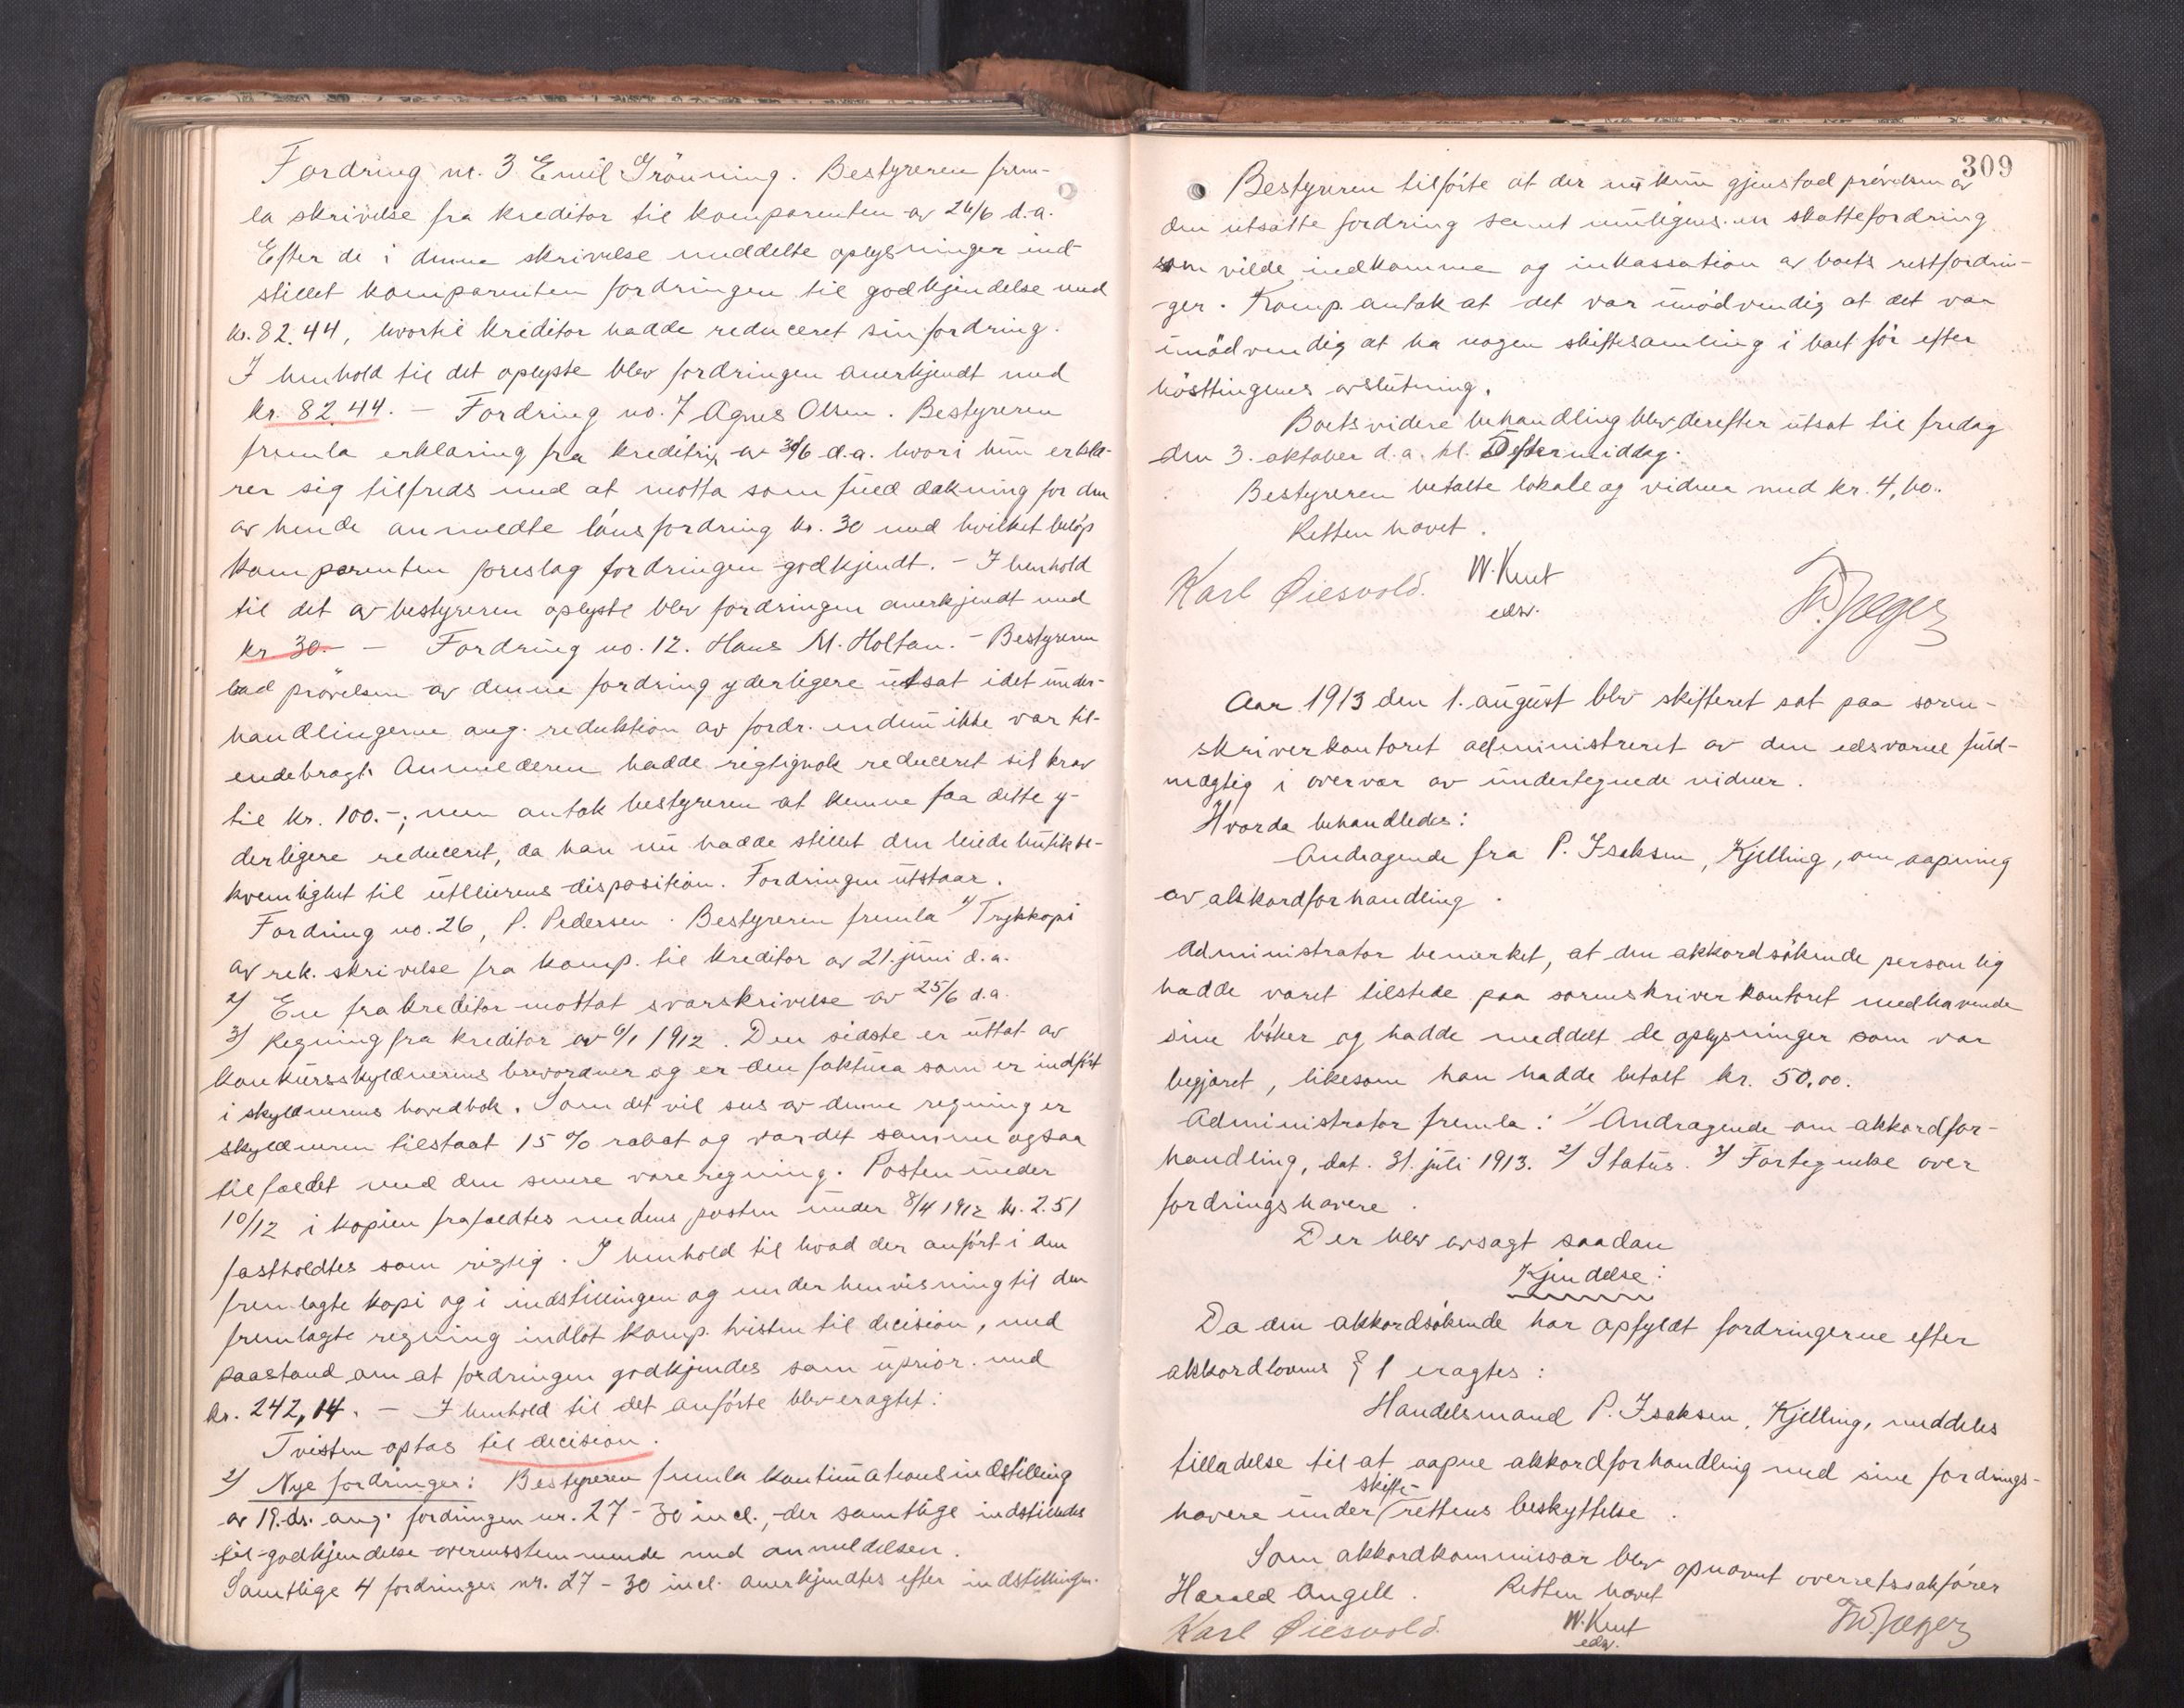 Fordring nr. 3 Emil Grönning. Bestyreren frem-
la skrivelse fra kreditor til komparenten av 26/6 d.a.
Efter de i denne skrivelse meddelte oplysninger ind-
stillet komparenten fordringen til godkjendelse med
kr. 82.44, hvortil kreditor hadde reduceret sin fordring.
I henhold til det oplyste blev fordringen anerkjendt med
kr. 82.44. – Fordring no. 7 Agnes Olsen. Bestyreren
fremla erklæring fra kreditrix av 30/6 d.a. hvori hun erklæ-
rer sig tilfreds med at motta som fuld dækning for den
av hende anmeldte lönsfordring kr. 30 med hvilket belöp
komparenten foreslog fordringen godkjendt. – I henhold
til det av bestyreren oplyste blev fordringen anerkjendt med
kr 30. – Fordring no. 12. Hans M. Holtan. – Bestyreren
bad prövelsen av denne fordring yderligere utsat idet under-
handlingerne ang. reduktion av fordr. endnu ikke var til-
endebragt. Anmelderen hadde rigtignok reduceret sit krav
til kr. 100.-; men antok bestyreren at kunne faa dette y-
derligere reduceret, da han nu hadde stillet den leiede butikbe-
kvemlighet til utleierens disposition. Fordringen utstaar.
Fordring no. 26, P. Pedersen. Bestyreren fremla 1) Trykkopi
av rek. skrivelse fra komp. til kreditor av 21. juni d.a.
2) En fra kreditor mottat svarskrivelse av 25/6 d.a.
3) Regning fra kreditor av 6/1 1912. Den sidste er uttat av
konkursskyldnerens brevordner og er den faktura som er indfört
i skyldnerens hovedbok. Som det vil sees av denne regning er
skyldneren tilstaat 15 % rabat og var det samme ogsaa
tilfældet med den senere vareregning. Posten under
10/12 i kopien frafaldtes medens posten under 8/4 1912 kr. 2.51
fastholdtes som rigtig. I henhold til hvad der anfört i den
fremlagte kopi og i indstillingen og under henvisning til den
fremlagte regning indlot komp. tvisten til decision, med
paastand om at fordringen godkjendes som uprior. med
kr. 242,14. – I henhold til det anförte blev eragtet:
Tvisten optas til decision.
2) Nye fordringer: Bestyreren fremla kontinuationsindstilling
av 19. ds. ang. fordringen nr. 27 – 30 incl., der samtlige indstilledes
til godkjendelse overensstemmende med anmeldelsen.
Samtlige 4 fordringer nr. 27 – 30 incl. anerkjendtes efter indstillingen.
309
Bestyreren tilförte at der nu kun gjenstod prövelsen av
den utsatte fordring samt muligens en skattefordring
som vilde indkomme og inkassation av boets restfordrin-
ger. Komp. antok at det var unödvendig at det var
unödvendig at ha nogen skiftesamling i boet för efter
hösttingenes avslutning.
Boets videre behandling blev derefter utsat til fredag
den 3. oktober d.a. kl. 5 eftermiddag.
Bestyreren betalte lokale og vidner med kr. 4,60.
Retten hævet.
Karl Øiesvold. W. Knut
edsv.
Aar 1913 den 1. august blev skifteret sat paa soren-
skriverkontoret administreret av den edsvorne fuld-
mægtig i overvær av undertegnede vidner.
Hvorda behandledes:
Andragende fra P. Isaksen, Kjelling, om aapning
av akkordforhandling.
Administrator bemerket, at den akkordsökende personlig
hadde været tilstede paa sorenskriverkontoret medhavende
sine böker og hadde meddelt de oplysninger som var
begjæret, likesom han hadde betalt kr. 50.00.
Administrator fremla: 1) Andragende om akkordfor-
handling, dat. 31. juli 1913. 2) Status. 3) Fortegnelse over
fordringshavere.
Der blev avsagt saadan
Kjendelse:
Da den akkordsökende har opfyldt fordringerne efter
akkordlovens § 1 eragtes:
Handelsmand P. Isaksen, Kjelling, meddeles
tilladelse til at aapne akkordforhandling med sine fordrings-
havere under skifte-rettens beskyttelse.
Som akkordkommissær blev opnævnt overretssakförer
Harald Angell. Retten hævet
Karl Øiesvold. W. Knut
edsv.